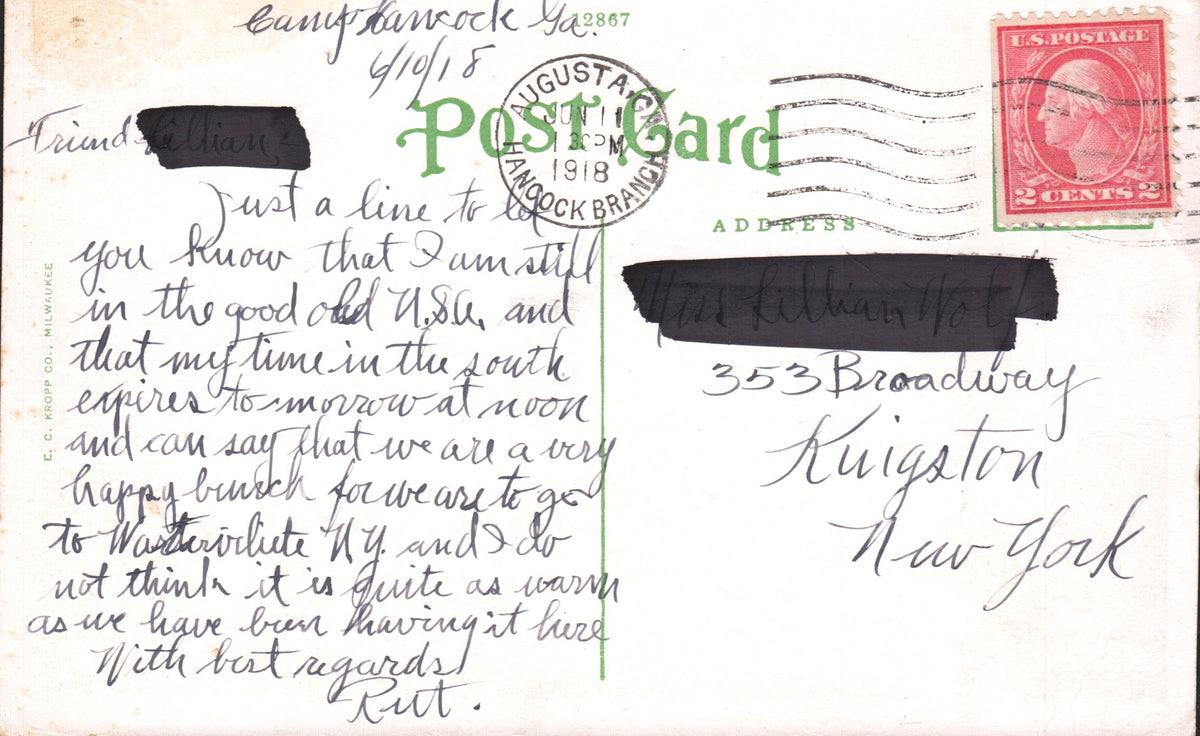 Camp Hancock Ga.
6/10/18
"Friend
Just a line to let
you know that I am still
in the good old U.S.A. and
that my time in the south
expires to-morrow at noon
and can say that we are a very
happy bunch for we are to go
to N.Y. and I do
not think it is quite as warm
as we have been having it here
With best regards
E. C. KROPP CO., MILWAUKEE
12867
Post Card
AUGUSTA, GA.
JUN 11
1 30 PM
1918
HANCOCK BRANCH
U.S. POSTAGE
2 CENTS 2
ADDRESS
353 Broadway
Kingston
New York